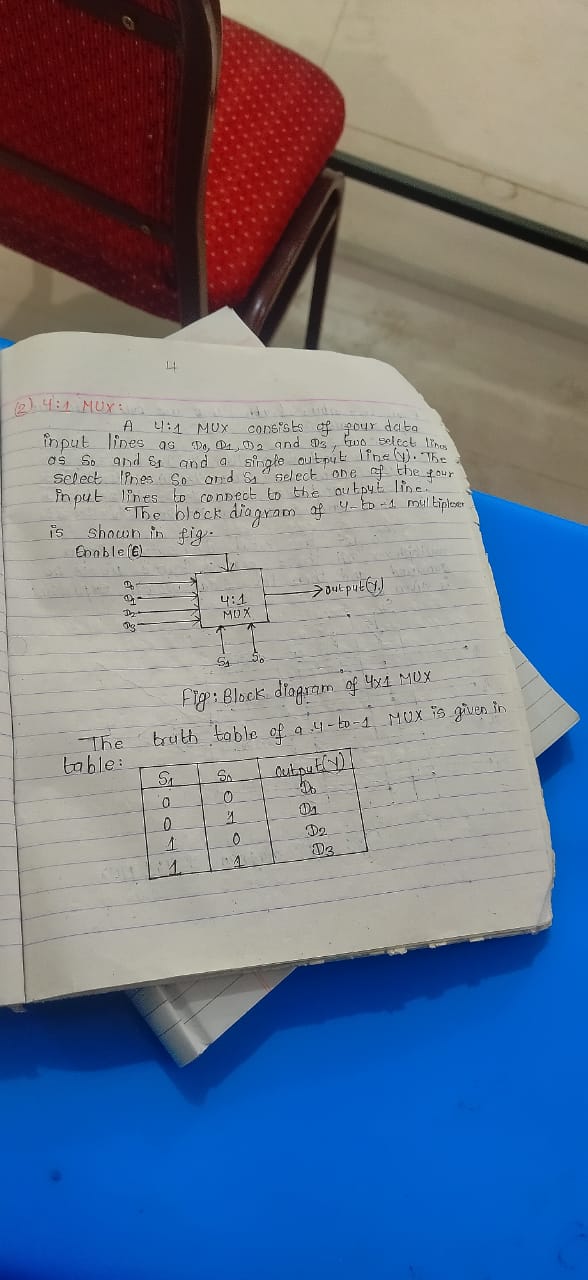 4
(2) 4:1 MUX:
A 4:1 MUX consists of four data
input lines as D0, D1, D2 and D3, two select lines
as S0 and S1 and a single output line(y). The
select lines S0 and S1 select one of the four
input lines to connect to the output line.
The block diagram of 4-to-1 multiplexer
is shown in fig.
Enable(E)
D0
D1
D2
D3
4:1
MUX
output(Y)
S1 S0
Fig: Block diagram of 4x1 MUX
The truth table of a 4-to-1 MUX is given in
table:
S1 S0 output(Y)
0 0 D0
0 1 D1
1 0 D2
1 1 D3